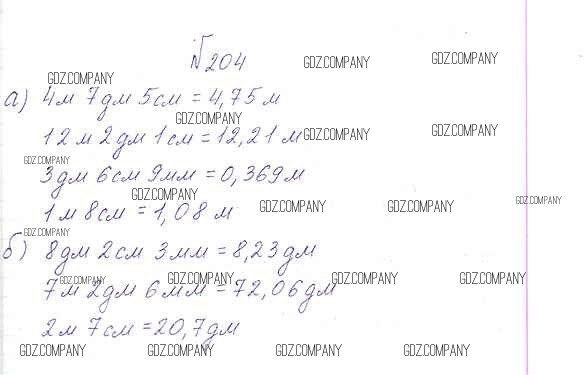 №204
GDZ.COMPANY GDZ.COMPANY
GDZ.COMPANY
а) 4м 7дм 5см = 4,75 м
GDZ.COMPANY
12 м 2 дм 1 см = 12,21 м
GDZ.COMPANY GDZ.COMPANY
GDZ.COMPANY
3дм 6см 9мм = 0,369 м
GDZ.COMPANY
1 м 8см = 1,08 м
GDZ.COMPANY GDZ.COMPANY GDZ.COMPANY
GDZ.COMPANY
б) 8дм 2см 3мм = 8,23 дм
GDZ.COMPANY GDZ.COMPANY GDZ.COMPANY GDZ.COMPANY
7м 2дм 6мм = 72,06 дм
2м 7см = 20,7 дм
GDZ.COMPANY GDZ.COMPANY GDZ.COMPANY GDZ.COMPANY